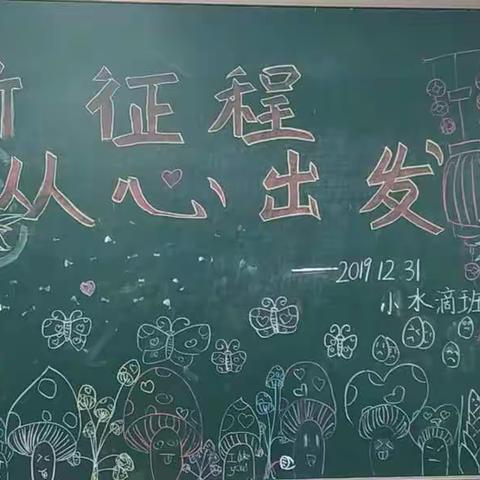 新征程
从心出发
——2019 12 31
小水滴班
I love you!